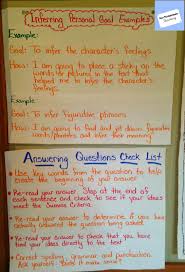 Inferring Personal Goal Examples
Example:
Goal: To infer the character's feelings
How: I am going to place a sticky op the
words or pictures in the text that
helped me to infer the character's
feelings.
Example:
Goal: To infer figurative phrases
How: I am going to find and jot down figurative
words/phrases and infer their meaning.
Answering Questions Check List
Use Key words from the question to help
create the beginning of your answer
Re-read your answer. Stop at the end of
each sentence and check to see if your ideas
meet the Success Criteria.
Re-read your answer to determine if you have
actually answered the question being asked.
Re-read your answer to check that you have
tied your ideas directly to the text
Correct spelling, grammar and punctuation.
Ask yourself, "Does it make sense?"